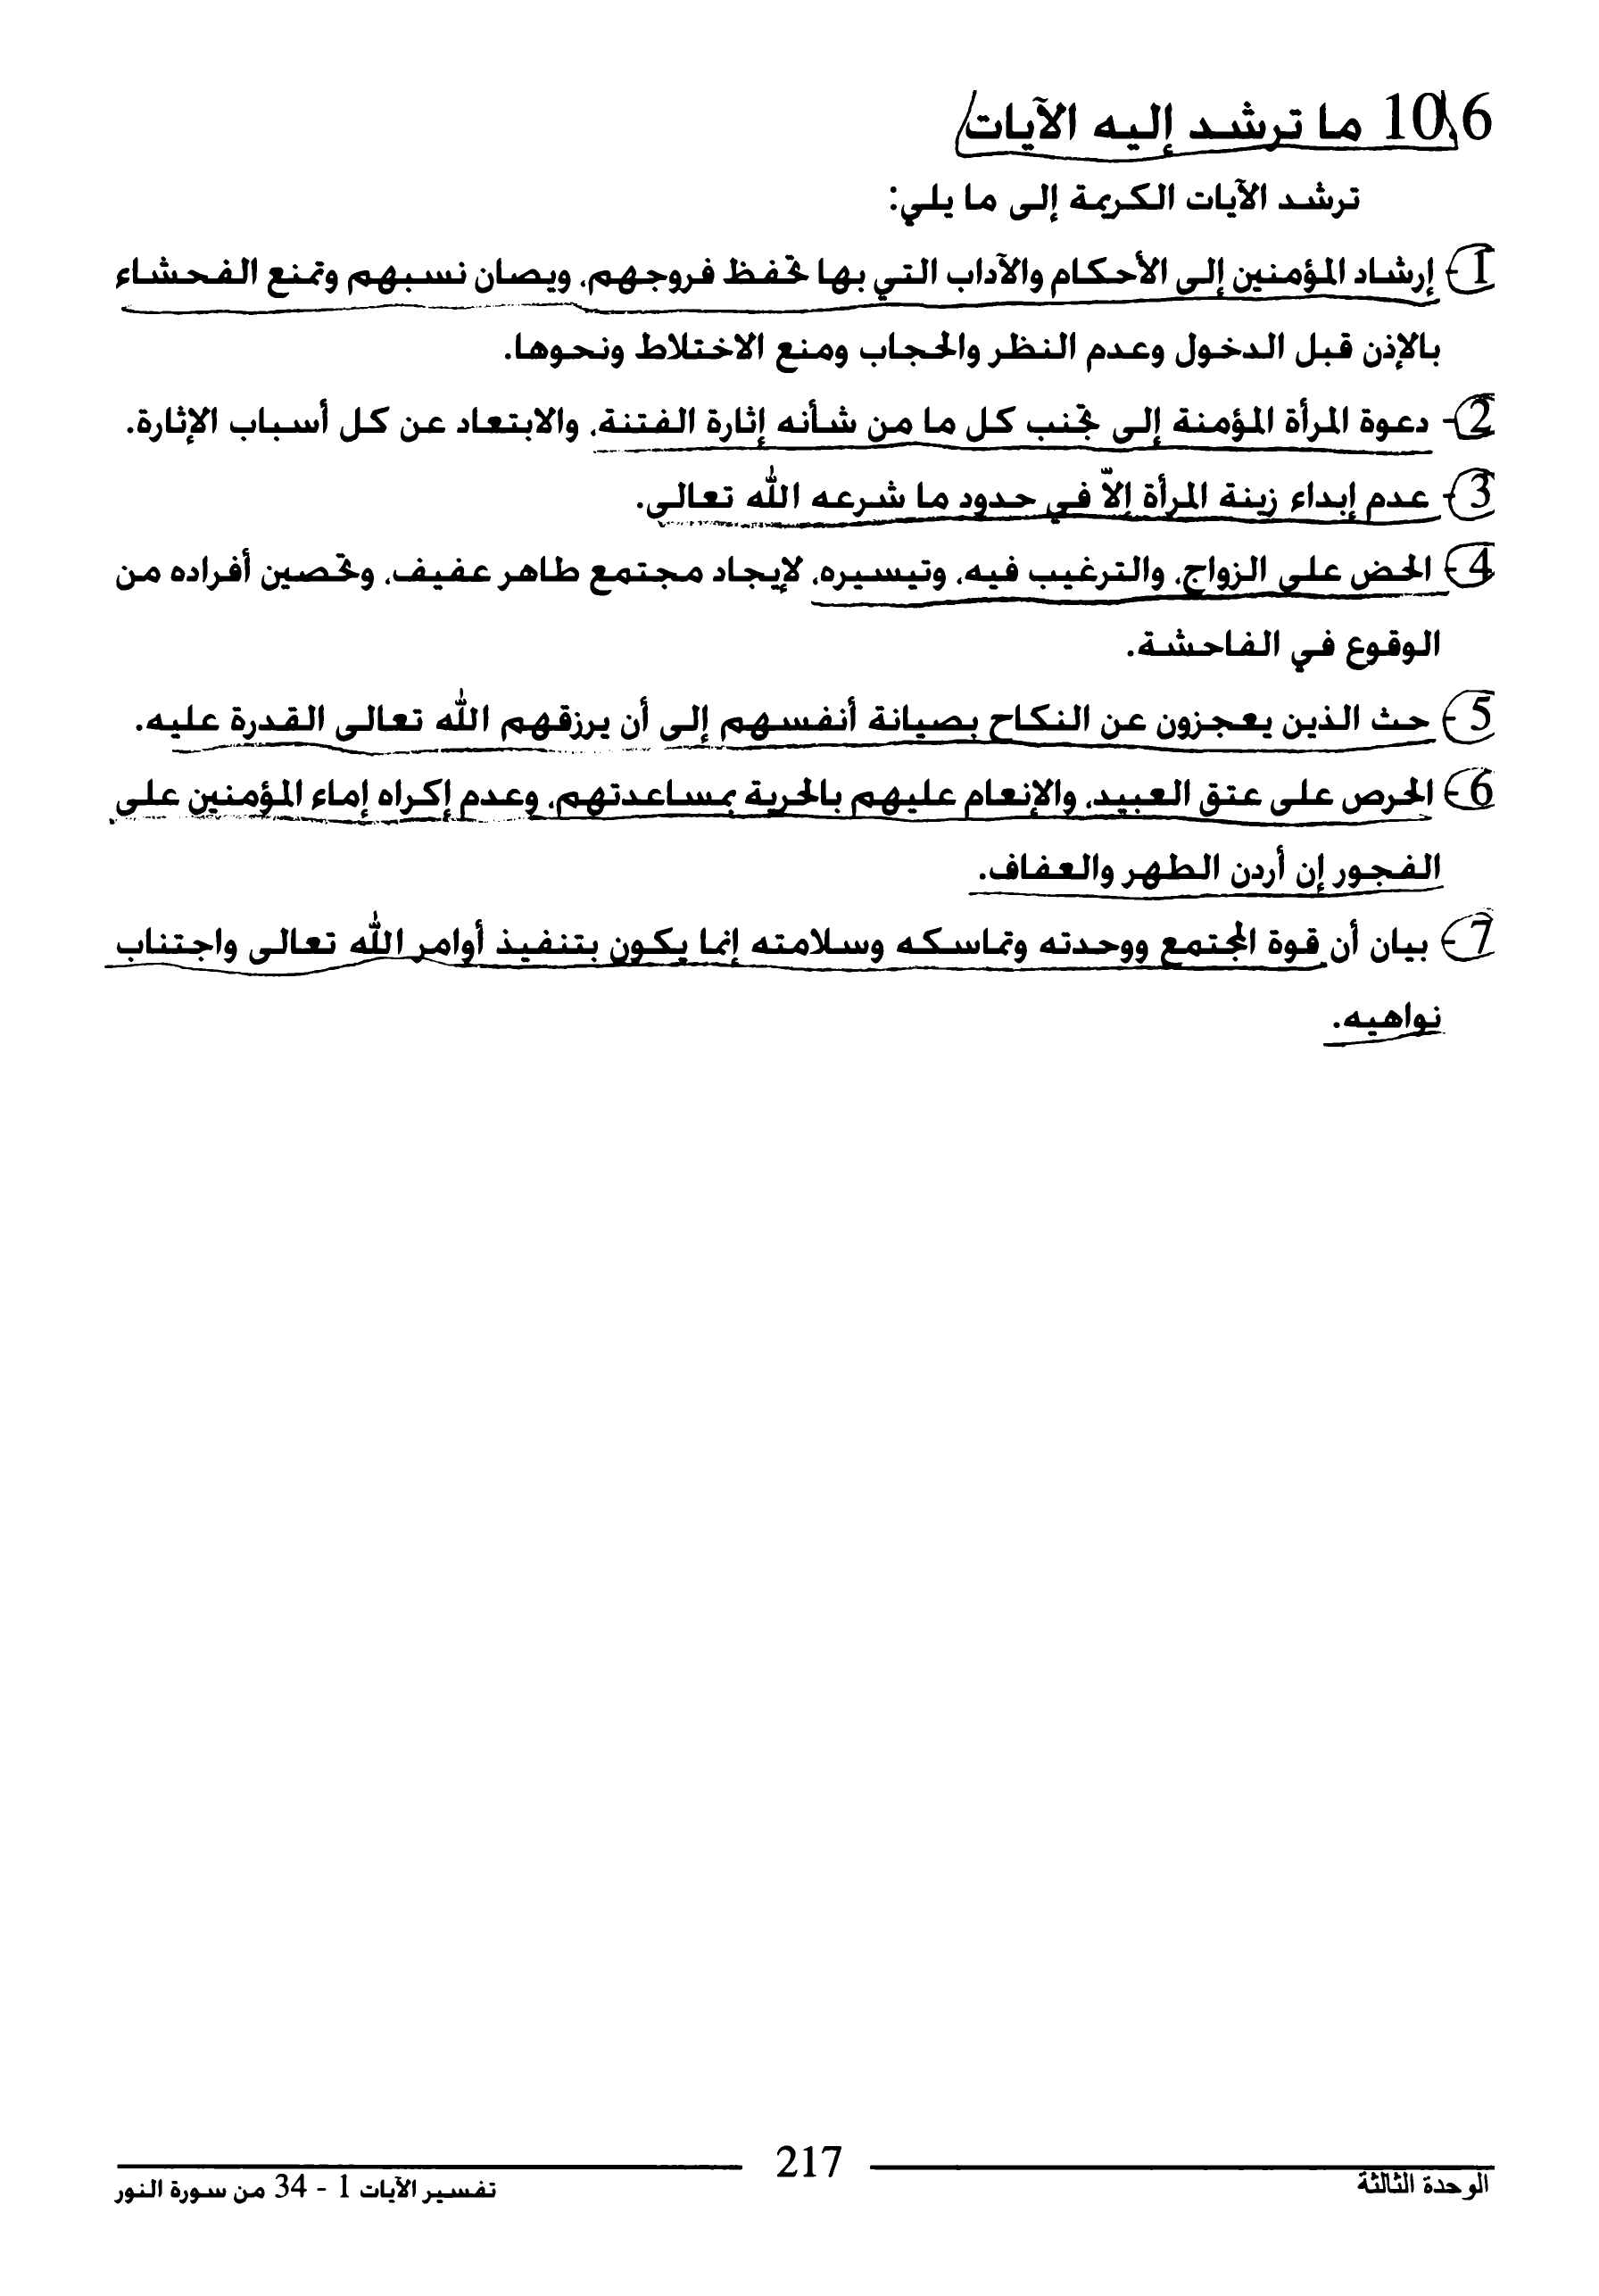 10\6 ما ترشد إليه الآيات
ترشد الآيات الكريمة إلى ما يلي:
1- إرشاد المؤمنين إلى الأحكام والآداب التي بها تحفظ فروجهم، ويصان نسبهم وتمنع الفحشاء
بالإذن قبل الدخول وعدم النظر والحجاب ومنع الاختلاط ونحوها.
2- دعوة المرأة المؤمنة إلى تجنب كل ما من شأنه إثارة الفتنة، والابتعاد عن كل أسباب الإثارة.
3- عدم إبداء زينة المرأة إلاّ في حدود ما شرعه الله تعالى.
4- الحض على الزواج، والترغيب فيه، وتيسيره، لإيجاد مجتمع طاهر عفيف، وتحصين أفراده من
الوقوع في الفاحشة.
5- حث الذين يعجزون عن النكاح بصيانة أنفسهم إلى أن يرزقهم الله تعالى القدرة عليه.
6- الحرص على عتق العبيد، والإنعام عليهم بالحرية بمساعدتهم، وعدم إكراه إماء المؤمنين على
الفجور إن أردن الطهر والعفاف.
7- بيان أن قوة المجتمع ووحدته وتماسكه وسلامته إنما يكون بتنفيذ أوامر الله تعالى واجتناب
نواهيه.
217
الوحدة الثالثة
تفسير الآيات 1 - 34 من سورة النور